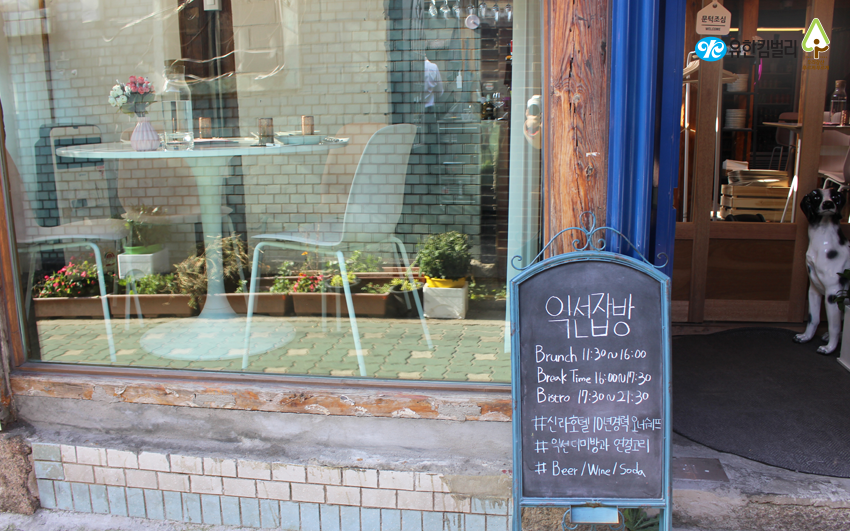 문턱조심
WELCOME
유한킴벌리
익선잡방
Brunch 11:30~16:00
Break Time 16:00~17:30
Bistro 17:30~21:30
#신라호텔 10년경력 오너쉐프
#익선디미방과 연결고리
# Beer/Wine/Soda